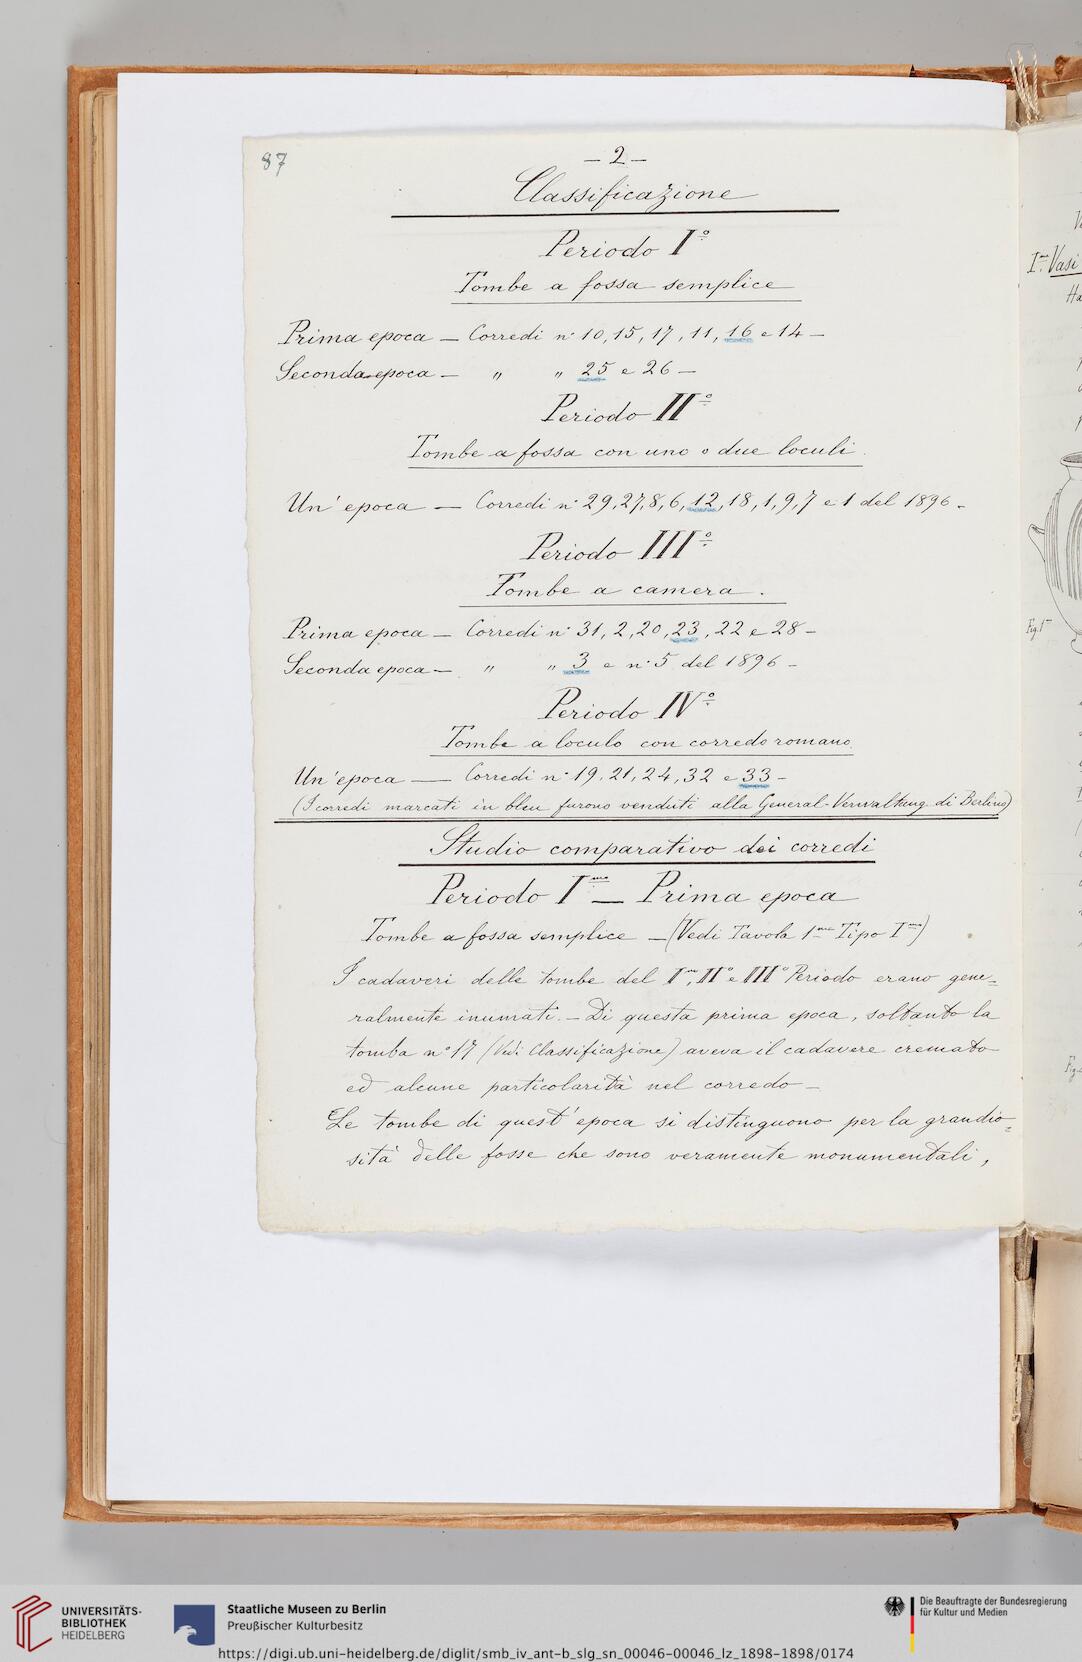 87
— 2 —
Classificazione
Periodo I°
Tombe a fossa semplice
Prima epoca — Corredi n° 10, 15, 17, 11, 16 e 14 —
Seconda epoca — " " 25 e 26 —
Periodo II°
Tombe a fossa con uno o due loculi.
Un' epoca — Corredi n° 29, 27, 8, 6, 12, 18, 1, 9, 7 e 1 del 1896 —
Periodo III°
Tombe a camera.
Prima epoca — Corredi n° 31, 2, 20, 23, 22 e 28 —
Seconda epoca — " " 3 e n° 5 del 1896 —
Periodo IV°
Tombe a loculo con corredo romano.
Un' epoca — Corredi n° 19, 21, 24, 32 e 33 —
(I corredi marcati in bleu furono venduti alla General-Verwaltung di Berlino)
Studio comparativo dei corredi
Periodo Imo — Prima epoca
Tombe a fossa semplice — (Vedi Tavola 1ma Tipo Imo)
I cadaveri delle tombe del Imo, II° e III° Periodo erano gene=
ralmente inumati. — Di questa prima epoca, soltanto la
tomba n° 17 (Vedi Classificazione) aveva il cadavere cremato
ed alcune particolarità nel corredo —
Le tombe di quest' epoca si distinguono per la grandio=
sità delle fosse che sono veramente monumentali,
Vasi
Fig. 1
UNIVERSITÄTS-
BIBLIOTHEK
HEIDELBERG
Staatliche Museen zu Berlin
Preußischer Kulturbesitz
Die Beauftragte der Bundesregierung
für Kultur und Medien
https://digi.ub.uni-heidelberg.de/diglit/smb_iv_ant-b_slg_sn_00046-00046_lz_1898-1898/0174